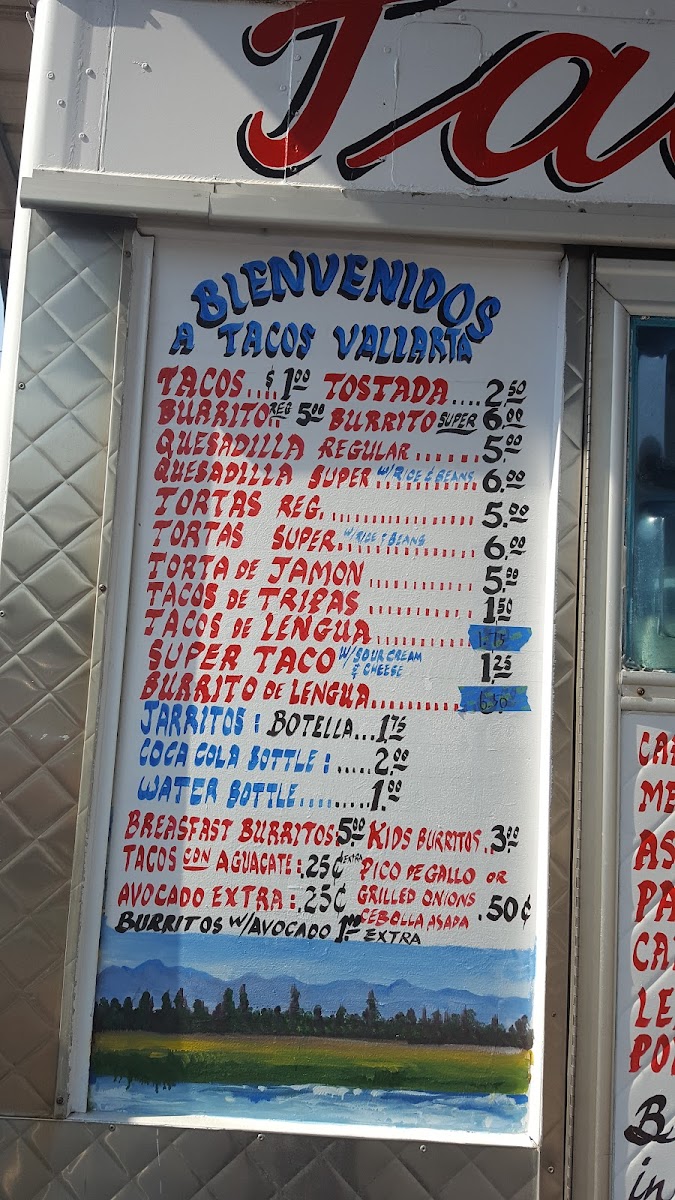 Ta
BIENVENIDOS
A TACOS VALLARTA
TACOS.... $1.00 TOSTADA.... 2.50
BURRITO REG.. 5.00 BURRITO SUPER 6.00
QUESADILLA REGULAR ....... 5.00
QUESADILLA SUPER W/RICE & BEANS 6.00
TORTAS REG. ............... 5.00
TORTAS SUPER W/RICE & BEANS 6.00
TORTA DE JAMON ........... 5.00
TACOS DE TRIPAS ........... 1.50
TACOS DE LENGUA ........... 1.75
SUPER TACO W/SOUR CREAM & CHEESE 1.25
BURRITO DE LENGUA..........
JARRITOS: BOTELLA...1.75
COCA COLA BOTTLE: .....2.00
WATER BOTTLE.........1.00
BREASFAST BURRITOS.5.00 KIDS BURRITOS..3.00
TACOS CON AGUACATE:.25¢ EXTRA PICO DE GALLO OR
AVOCADO EXTRA:.25¢ GRILLED ONIONS
CEBOLLA ASADA .50¢
BURRITOS W/AVOCADO 1.00 EXTRA
CA
ME
AS
PA
CA
LE
PO
B
in